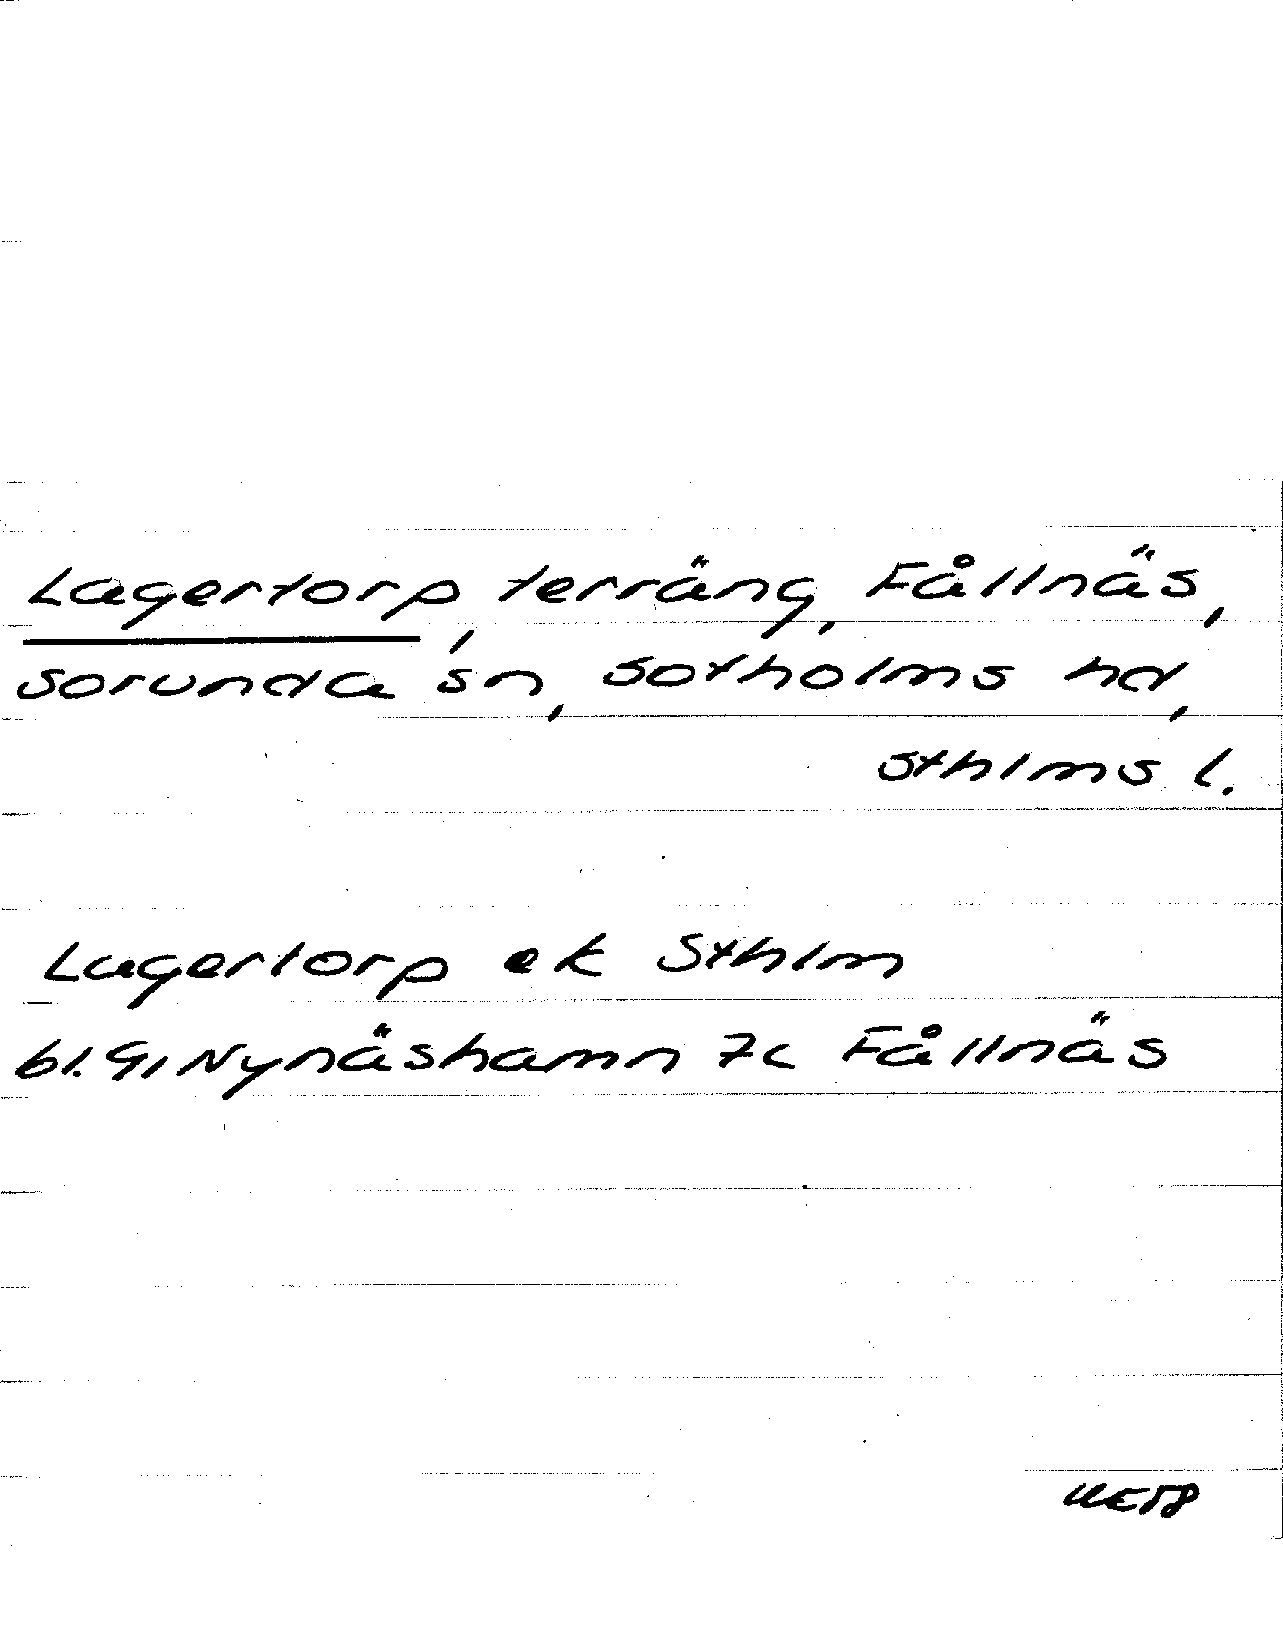 Lagertorp, terräng, Fållnäs,
Sorunda sn, Sotholms hd,
Sthlms l.
Lagertorp ek Sthlm
bl. 91 Nynäshamn 7c Fållnäs